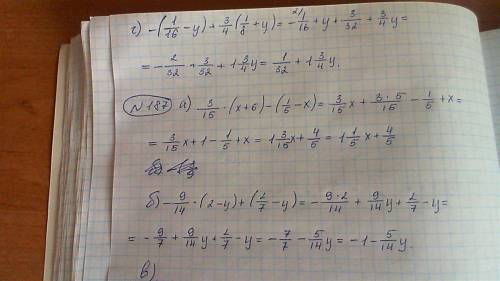 г) -(1/16 - y) + 3/4 (1/8 + y) = -1/16 + y + 3/32 + 3/4 y =
= -2/32 + 3/32 + 1 3/4 y = 1/32 + 1 3/4 y.
N 187 а) 3/15 · (x+5) - (1/5 - x) = 3/15 x + 3·5/15 - 1/5 + x =
= 3/15 x + 1 - 1/5 + x = 1 3/15 x + 4/5 = 1 1/5 x + 4/5
б) -9/14 · (2-y) + (2/7 - y) = -9·2/14 + 9/14 y + 2/7 - y =
= -9/7 + 9/14 y + 2/7 - y = -7/7 - 5/14 y = -1 - 5/14 y.
в)